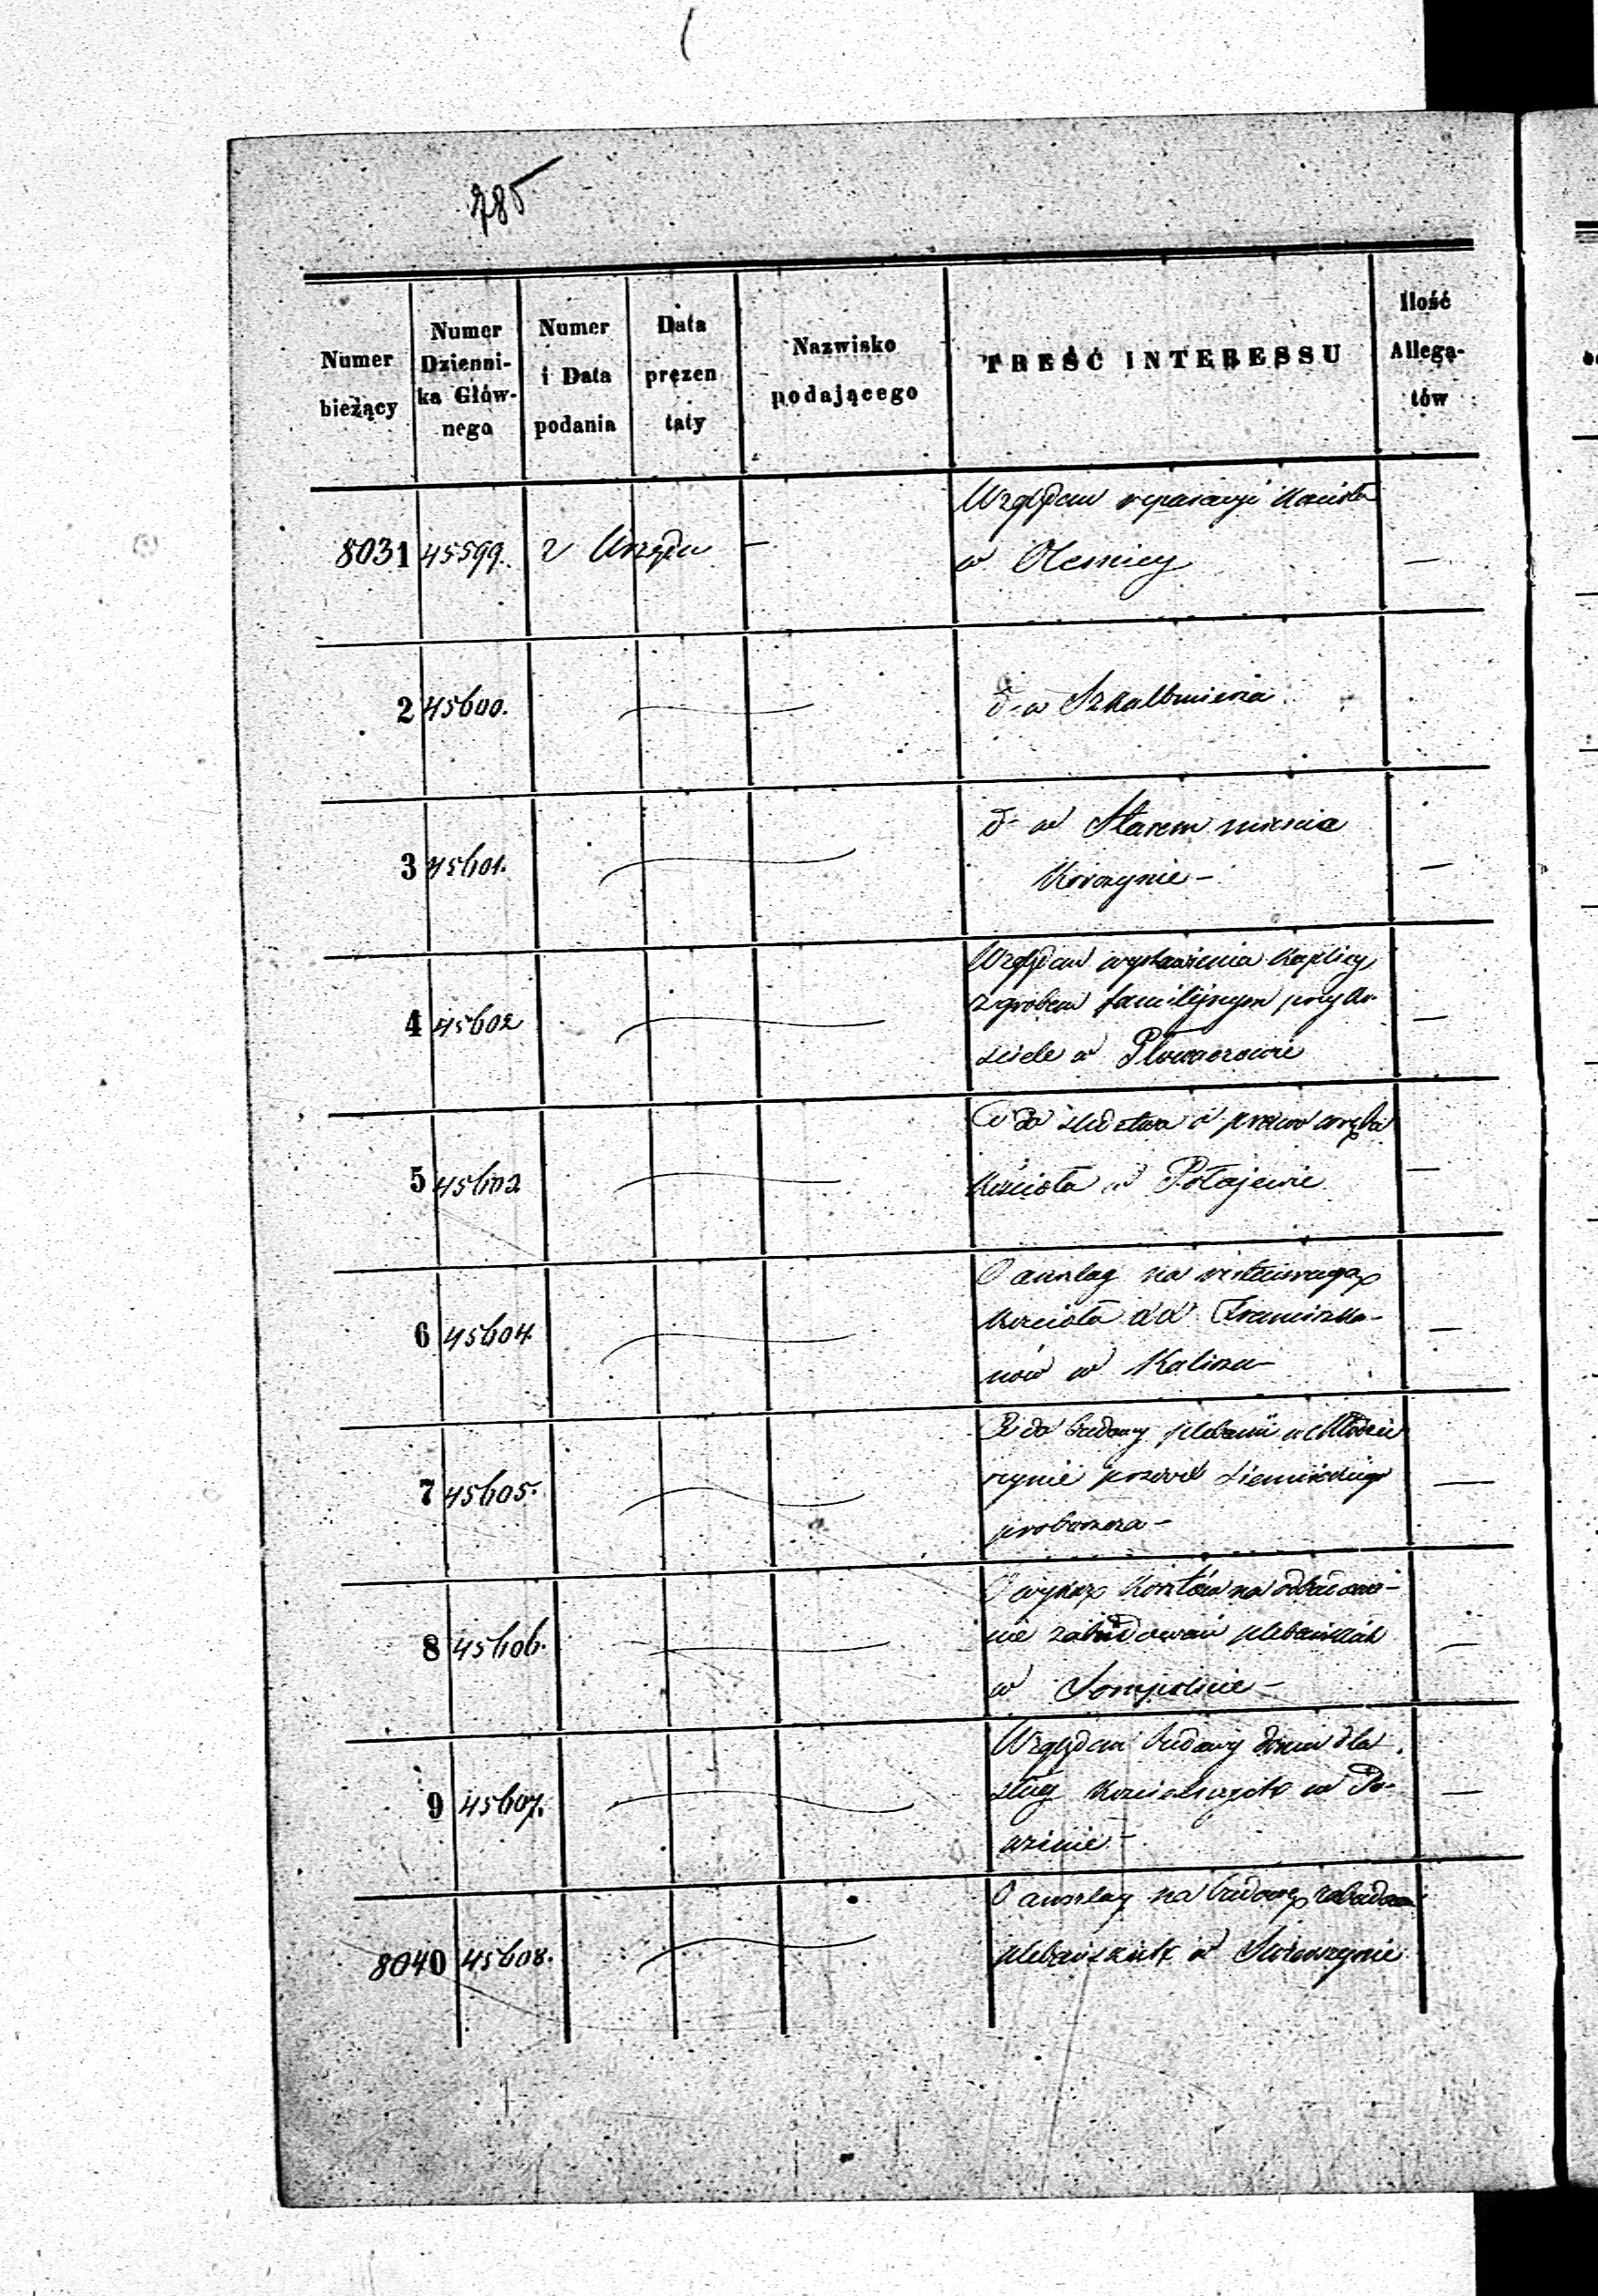 785
Numer bieżący
Numer Dzienni-ka Głów-nego
Numer i Data podania
Data prezen taty
Nazwisko podającego
TREŚĆ INTERESSU
Ilość Allega-tów
8031 45599. z Urzędu — Względem reparacyi Kościoła
w Olesnicy —
2 45600. d-o w Szkalbmierza
3 45601. d-o w Starem mieście
Korczynie — —
4 45602 Względem wystawienia kaplicy
z grobem familijnym przy Ko-
ściele w —
5 45602 do śledztwa o prawo wrębu
Kościoła w Połajewie —
6 45604 O anszlag na restauracyą
kościoła xx Franciszka-
nów w Kaliszu —
7 45605. do budowy plebanii w
przeciw
proboszcza —
8 45606. O wykaz kosztów na odbudowa-
nie zabudowań plebańskich
w Sompolnie — —
9 45607. Względem budowy domu dla
sług kościelnych w
—
8040 45608. O anszlag na budowę zabudowań
plebańskich w